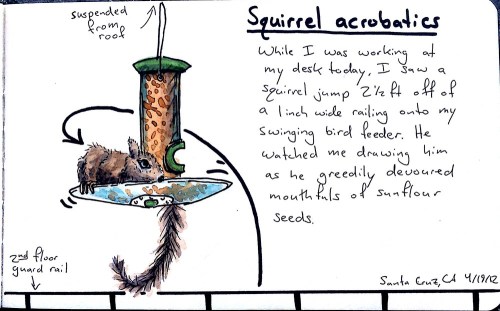 suspended
from
roof
Squirrel acrobatics
While I was working at
my desk today, I saw a
squirrel jump 2½ ft off of
a 1inch wide railing onto my
swinging bird feeder. He
watched me drawing him
as he greedily devoured
mouthfuls of sunflour
seeds.
2nd floor
guard rail
Santa Cruz, CA 4/19/12